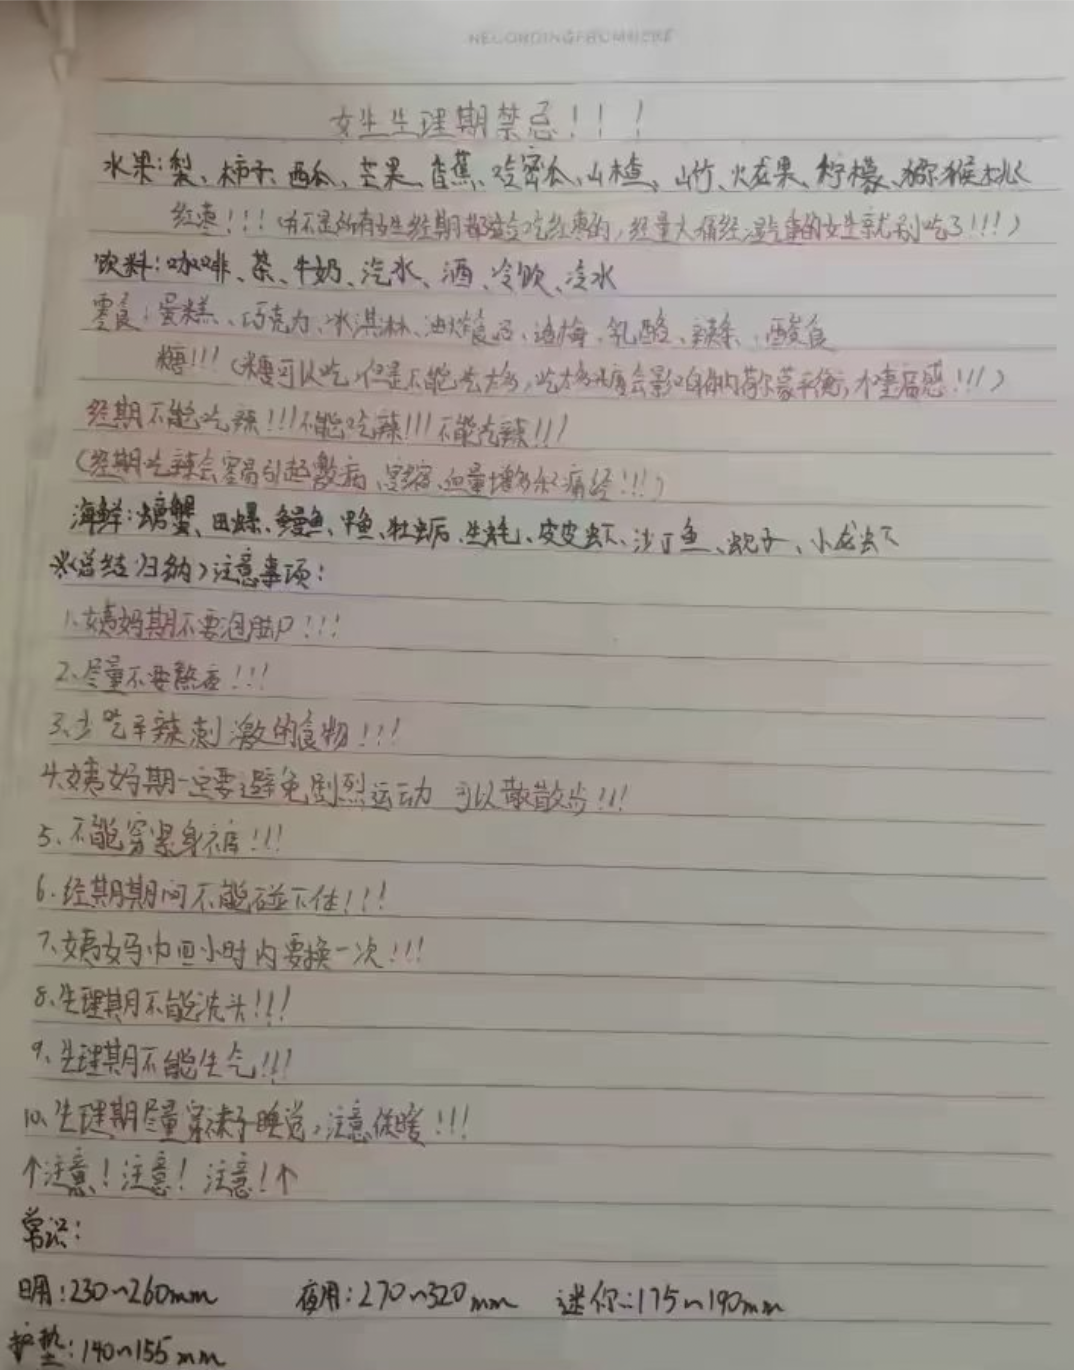 RECORDING
女生生理期禁忌!!!
水果:梨、柿子、西瓜、芒果、香蕉、哈密瓜、山楂、山竹、火龙果、柠檬、猕猴桃
红枣!!!(有不是所有女生经期都适合吃红枣的,经量大痛经湿气重的女生就别吃了!!!)
饮料:咖啡、茶、牛奶、汽水、酒、冷饮、冷水
零食:蛋糕、巧克力、冰淇淋、油炸食品、话梅、乳酪、辣条、酸食
糖!!!(糖可以吃,但是不能吃太多,吃太多糖会影响体内荷尔蒙平衡,加重痛感!!!)
经期不能吃辣!!!不能吃辣!!!不能吃辣!!!
(经期吃辣会容易引起腹痛、宫缩、血量增多和痛经!!!)
海鲜:螃蟹、田螺、鳗鱼、甲鱼、牡蛎、生蚝、皮皮虾、沙丁鱼、蚬子、小龙虾
※(总结归纳)注意事项:
1、姨妈期不要泡脚!!!
2、尽量不要熬夜!!!
3、少吃辛辣刺激的食物!!!
4、姨妈期一定要避免剧烈运动 可以散散步!!!
5、不能穿紧身裤!!!
6、经期期间不能碰下体!!!
7、姨妈巾四小时内要换一次!!!
8、生理期不能洗头!!!
9、生理期不能生气!!!
10、生理期尽量穿袜子睡觉,注意保暖!!!
↑注意!注意!注意!↑
常识:
日用:230~260mm 夜用:270~320mm 迷你:175~190mm
护垫:140~155mm